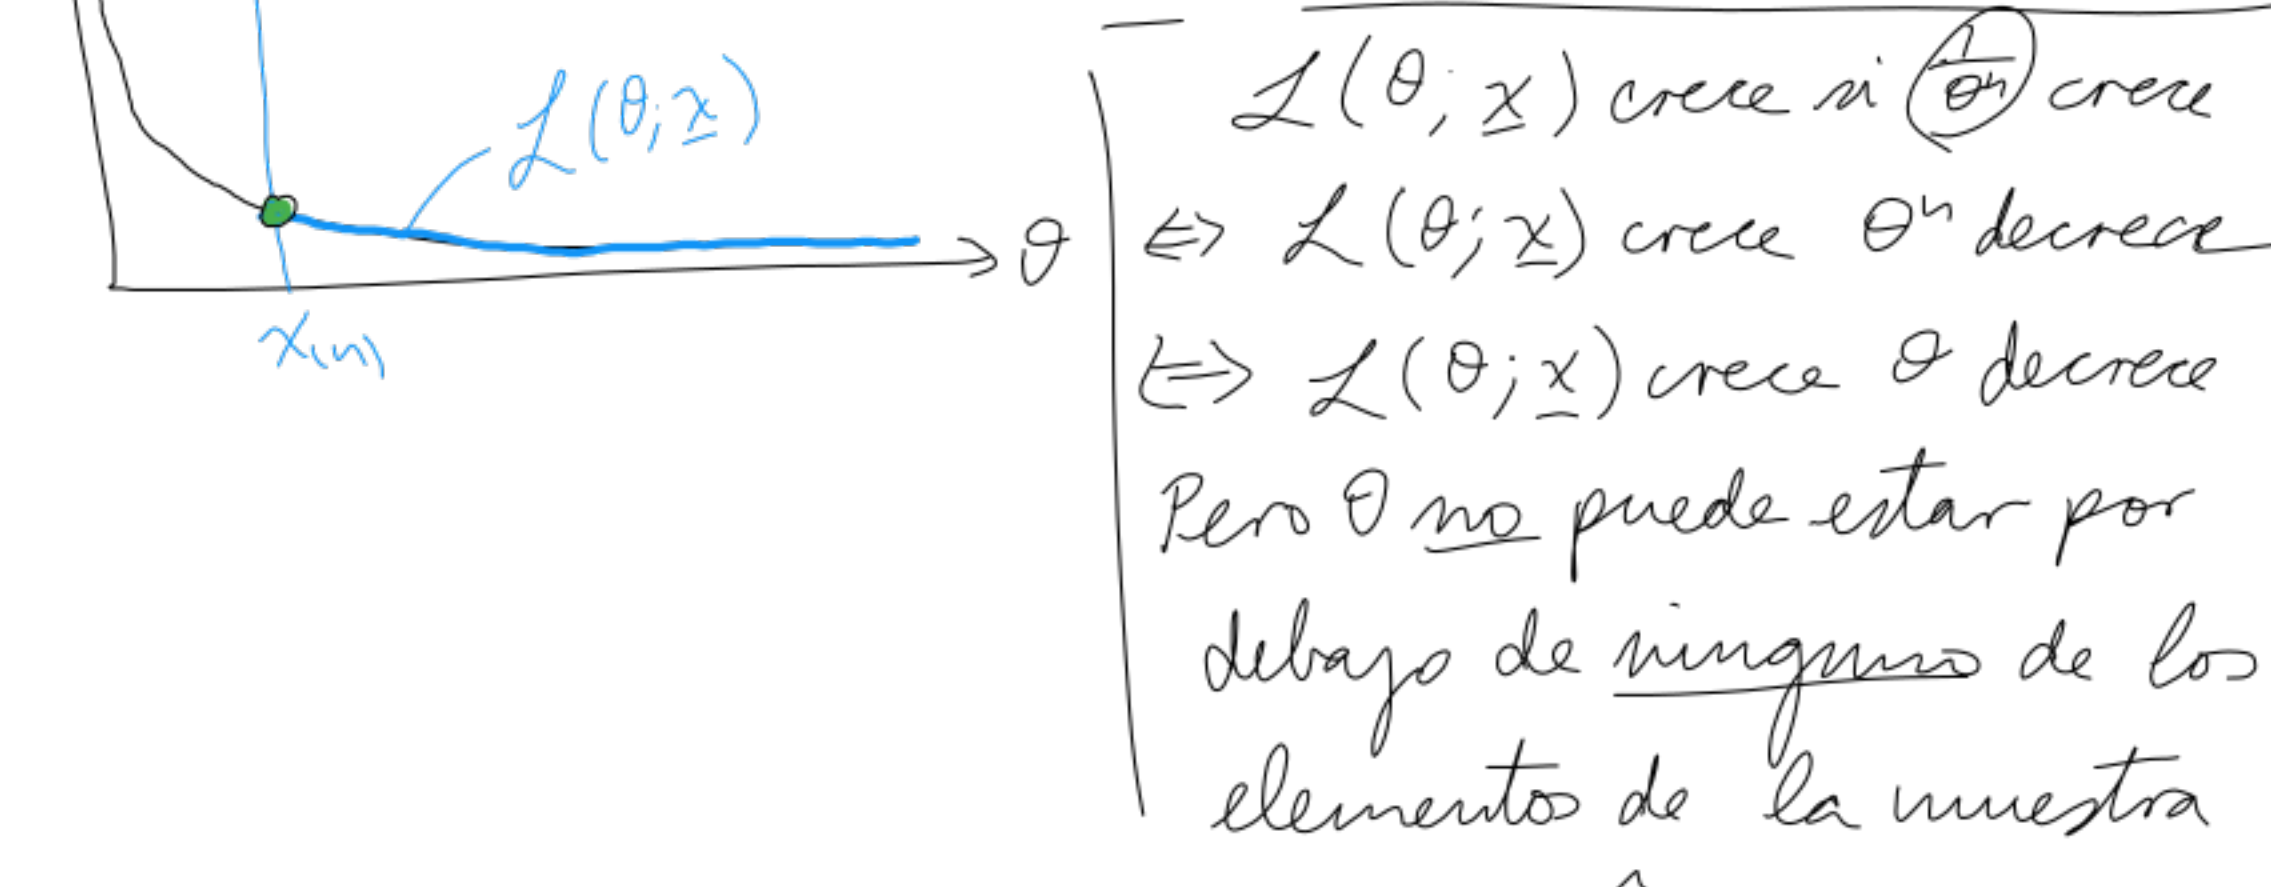 ℒ(θ; x̲)
θ
x₍ₙ₎
ℒ(θ; x̲) crece si 1/θⁿ crece
⇔ ℒ(θ; x̲) crece θⁿ decrece
⇔ ℒ(θ; x̲) crece θ decrece
Pero θ no puede estar por
debajo de ninguno de los
elementos de la muestra